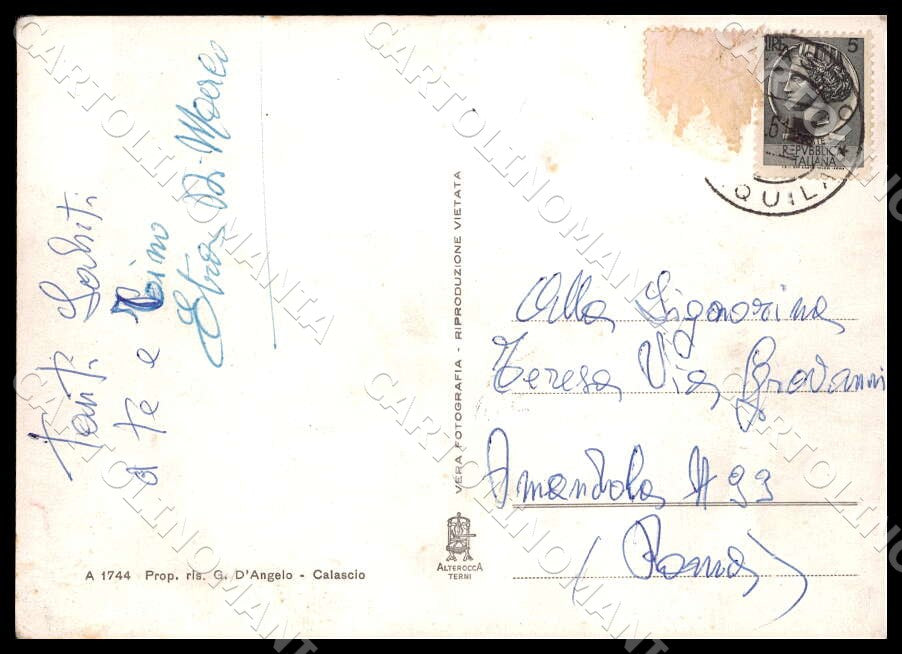 Tanti Saluti
a te e Nino
Di Marco
VERA FOTOGRAFIA - RIPRODUZIONE VIETATA
A 1744 Prop. ris. G. D'Angelo - Calascio
ALTEROCCA
TERNI
LIRE 5
REPVBBLICA
ITALIANA
QUILA
Alla Signorina
Teresa Via Giovanni
Amandola N 93
(Roma)
CARTOLINOMANIA